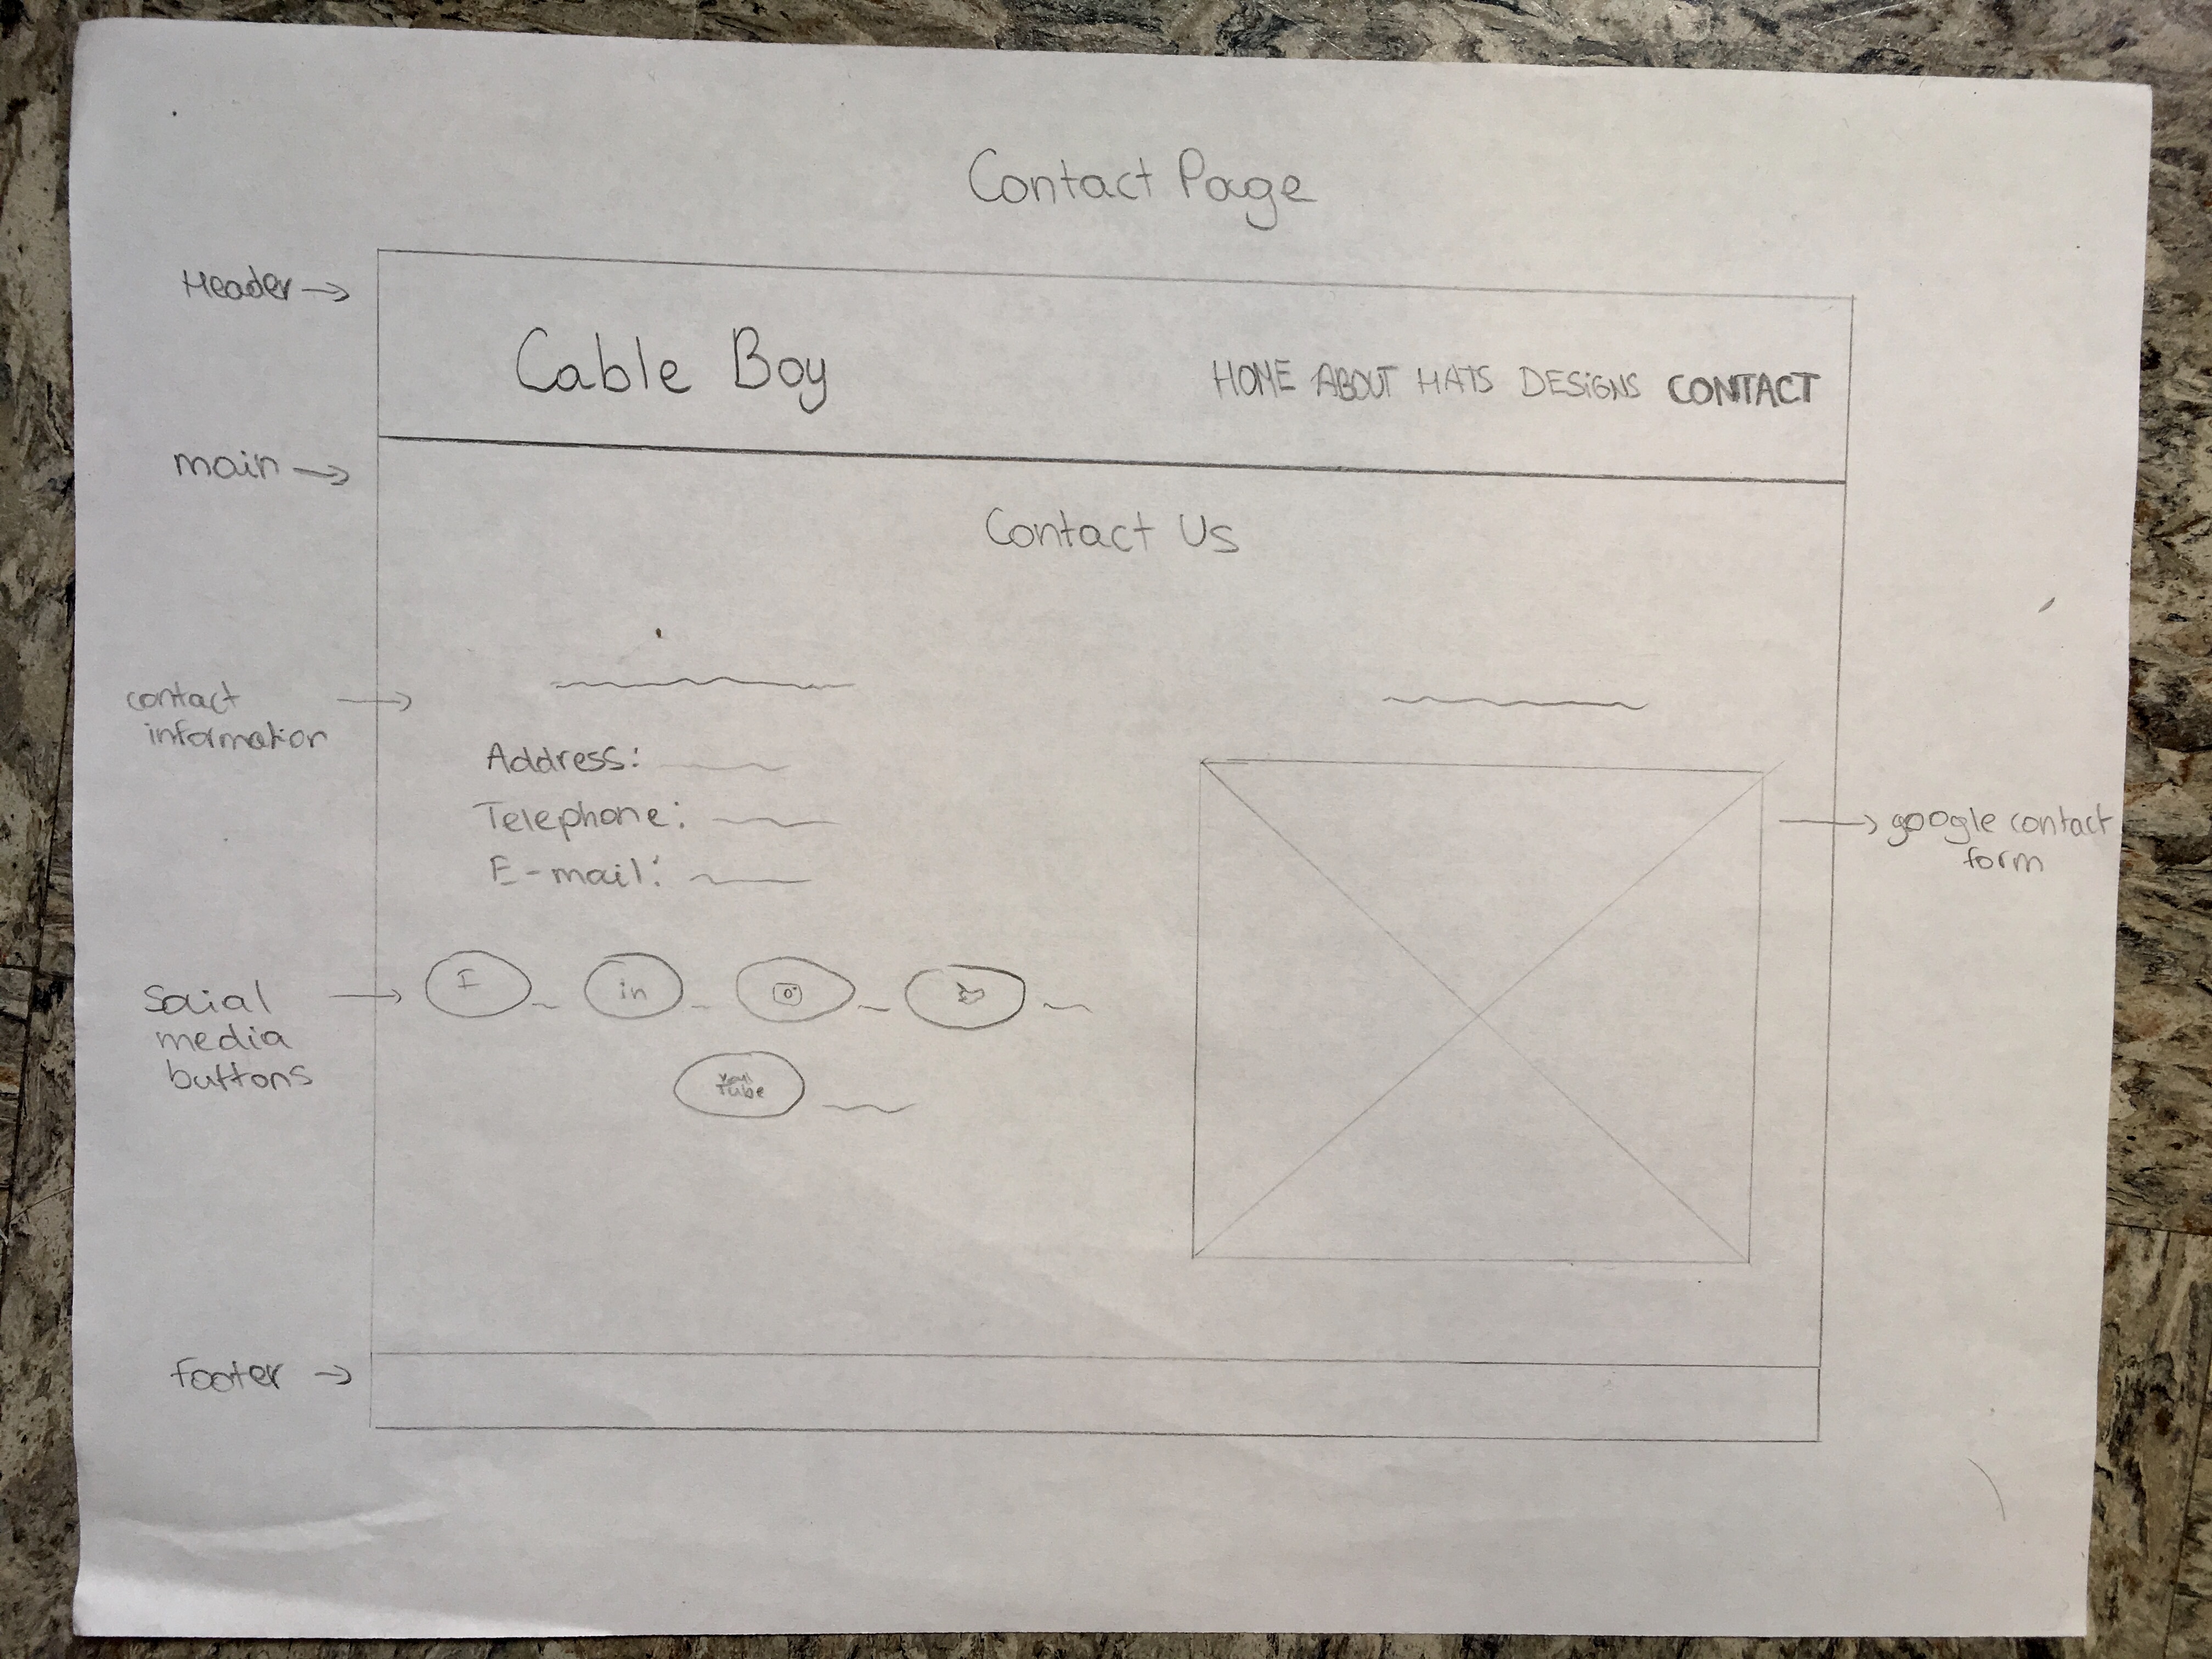 Contact Page
Header
Cable Boy
HOME ABOUT HATS DESiGNS CONTACT
main
Contact Us
contact
information
Address:
Telephone:
E-mail:
google contact
form
Social
media
buttons
in
You
Tube
footer